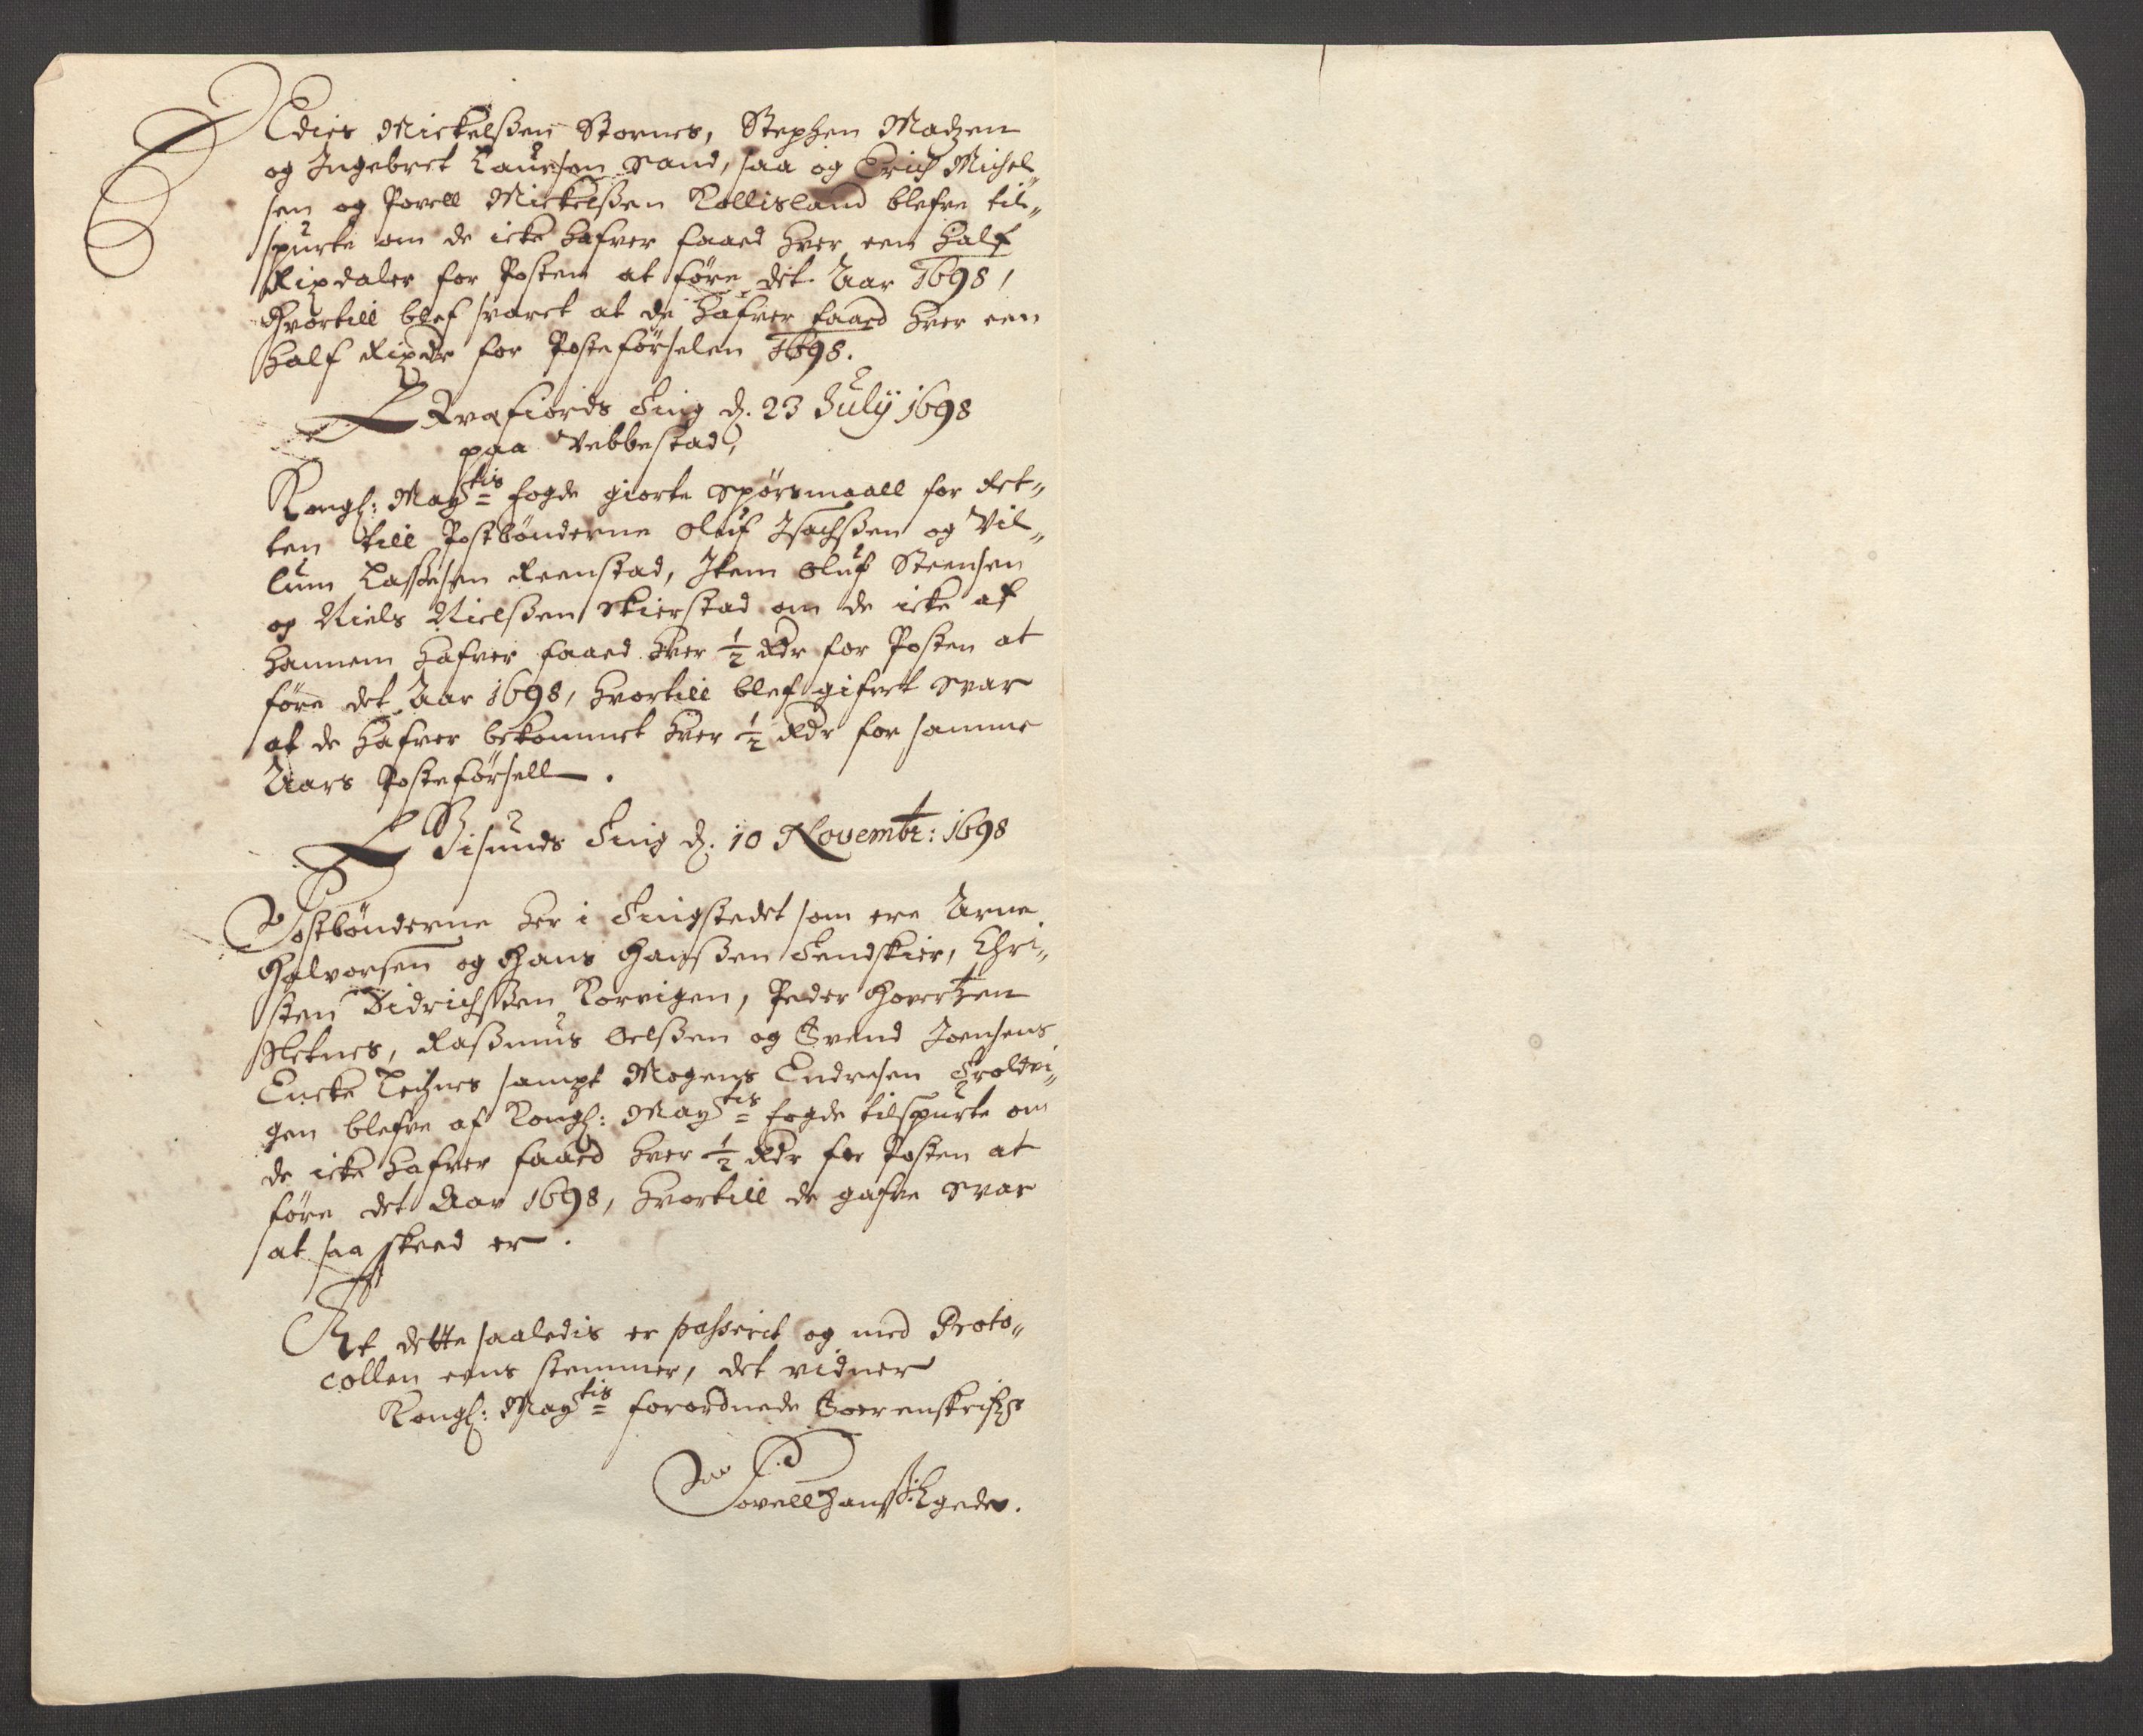 Edies Mickelßen Stornes, Stephen Madzen
og Ingebret Laursen Sand, saa og Erich Michel„
sen og Povell Mickelßen Rollisland blefve til„
spurte om de icke hafver faaed hver een half
Rixdaler for Posten at føre dét Aar 1698,
Hvortill blef svaret at de hafver faaed hver een
half Rixdr for Posteførselen 1698.
Kvæfiords Ting d. 23 Julÿ 1698
paa Vebbestad,
Kongl: May:tis fogde giorte spørsmaall for Ret„
ten till Postbönderne Oluf Isachsßen og Vil„
lum Lassesen Reenstad, Item Oluf Steensen
og Niels Nielsßen Skierstad om de icke af
hannem hafver faaed hver ½ Rdr for Posten at
føre det Aar 1698, hvortill blef gifvet svar
at de hafver bekommet hver ½ Rdr for samme
Aars Posteførsell.
Gisunds Ting d. 10 Novembr: 1698
Postbönderne her i Tingstedet som ere Arne
Halvorsen og Hans Hansßen Tendskier, Chri„
sten Didrichsßen Korvigen, Peder Hvertzen
Sletnes, Rasßmus Oelsßen og Svend Joensens
Encke Leignes sampt Mogens Endresen Troldvi„
gen blefve af Kongl: May:tis fogde tilspurte om
de icke hafver faaed hver ½ Rdr for Posten at
føre det Aar 1698, hvortill de gafve svar
at saa skeed er.
At dette saaledis er passerit og med Proto„
collen eens stemmer, det vidner
Kongl: May:tis forordnede Soerenskrifvr
Povell Hansß: Egede.